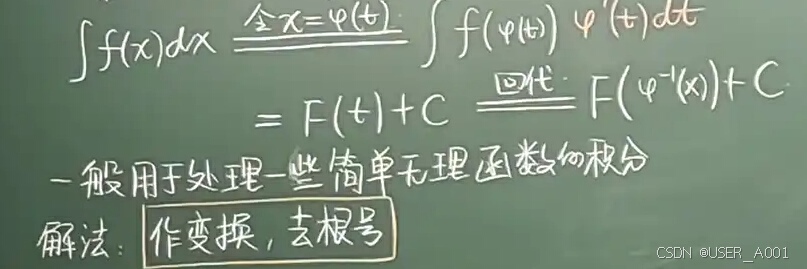 ∫f(x)dx 令x=φ(t) ∫f(φ(t))φ'(t)dt
= F(t)+C 回代 F(φ⁻¹(x))+C
一般用于处理一些简单无理函数的积分
解法: 作变换,去根号
CSDN @USER_A001